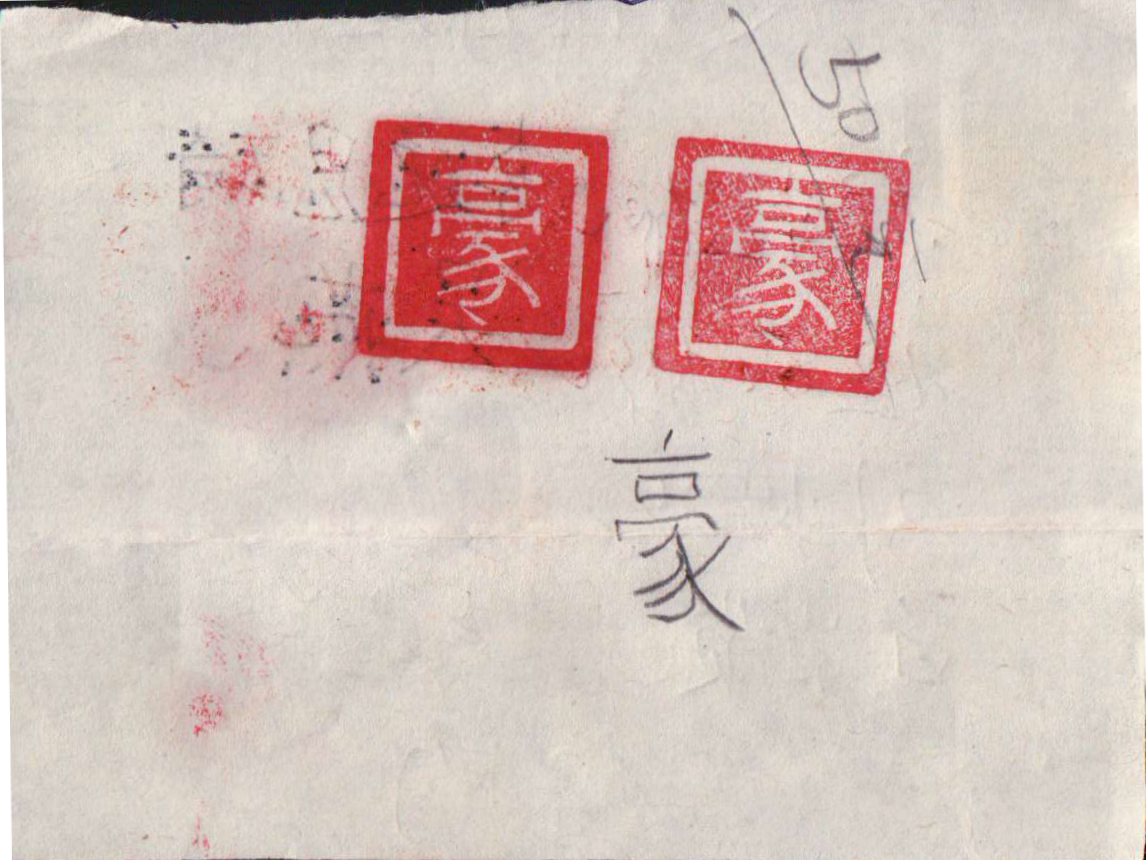 50
豪 豪
豪